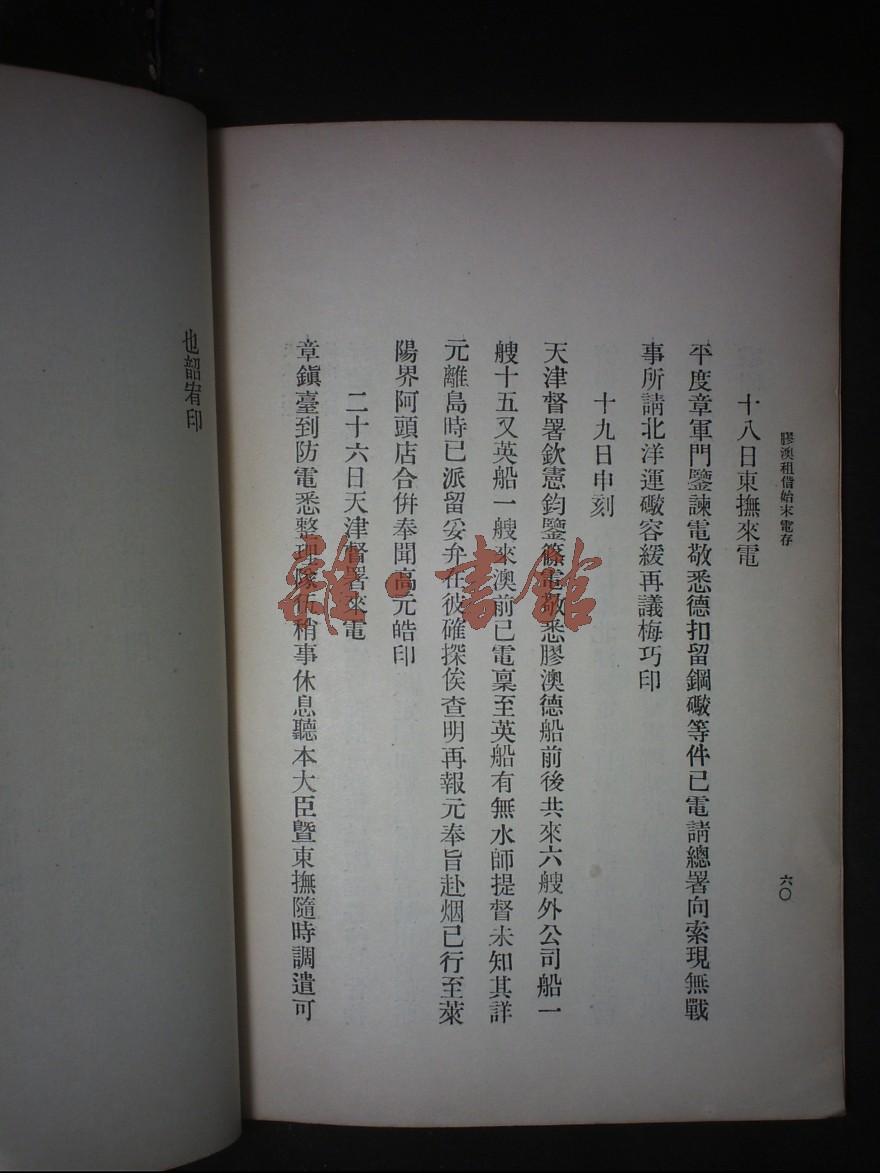 膠澳租借始末電存
六〇
十八日東撫來電
平度章軍門鑒諫電敬悉德扣留鋼礮等件已電請總署向索現無戰
事所請北洋運礮容緩再議梅巧印
十九日申刻
天津督署欽憲鈞鑒篠電敬悉膠澳德船前後共來六艘外公司船一
艘十五又英船一艘來澳前已電稟至英船有無水師提督未知其詳
元離島時已派留妥弁在彼確探俟查明再報元奉旨赴烟已行至萊
陽界阿頭店合併奉聞高元皓印
二十六日天津督署來電
章鎭臺到防電悉整理隊伍稍事休息聽本大臣曁東撫隨時調遣可
也韶宥印
雜·書館